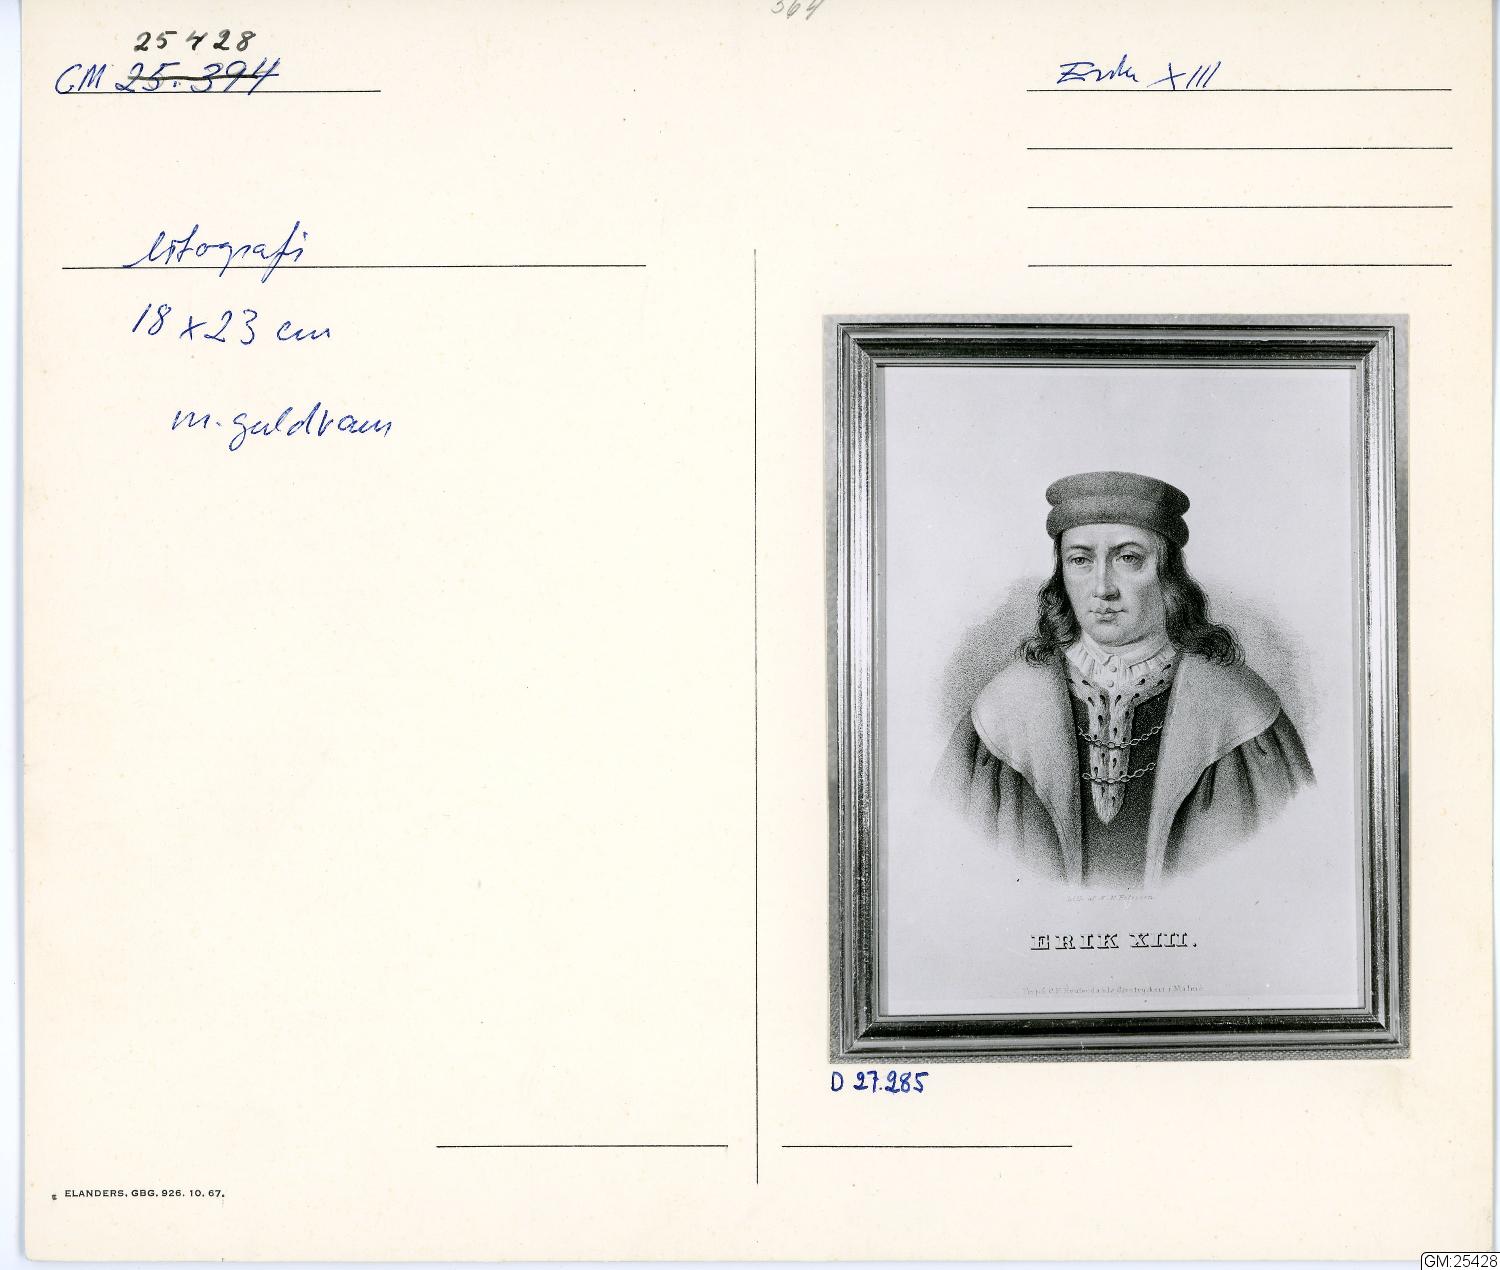 364
25428
GM 25.394
Erik XIII
litografi
18 x 23 cm
m. guldram
Lith. af
ERIK XIII.
i Malmö
D 27.285
ELANDERS, GBG. 926. 10. 67.
GM:25428